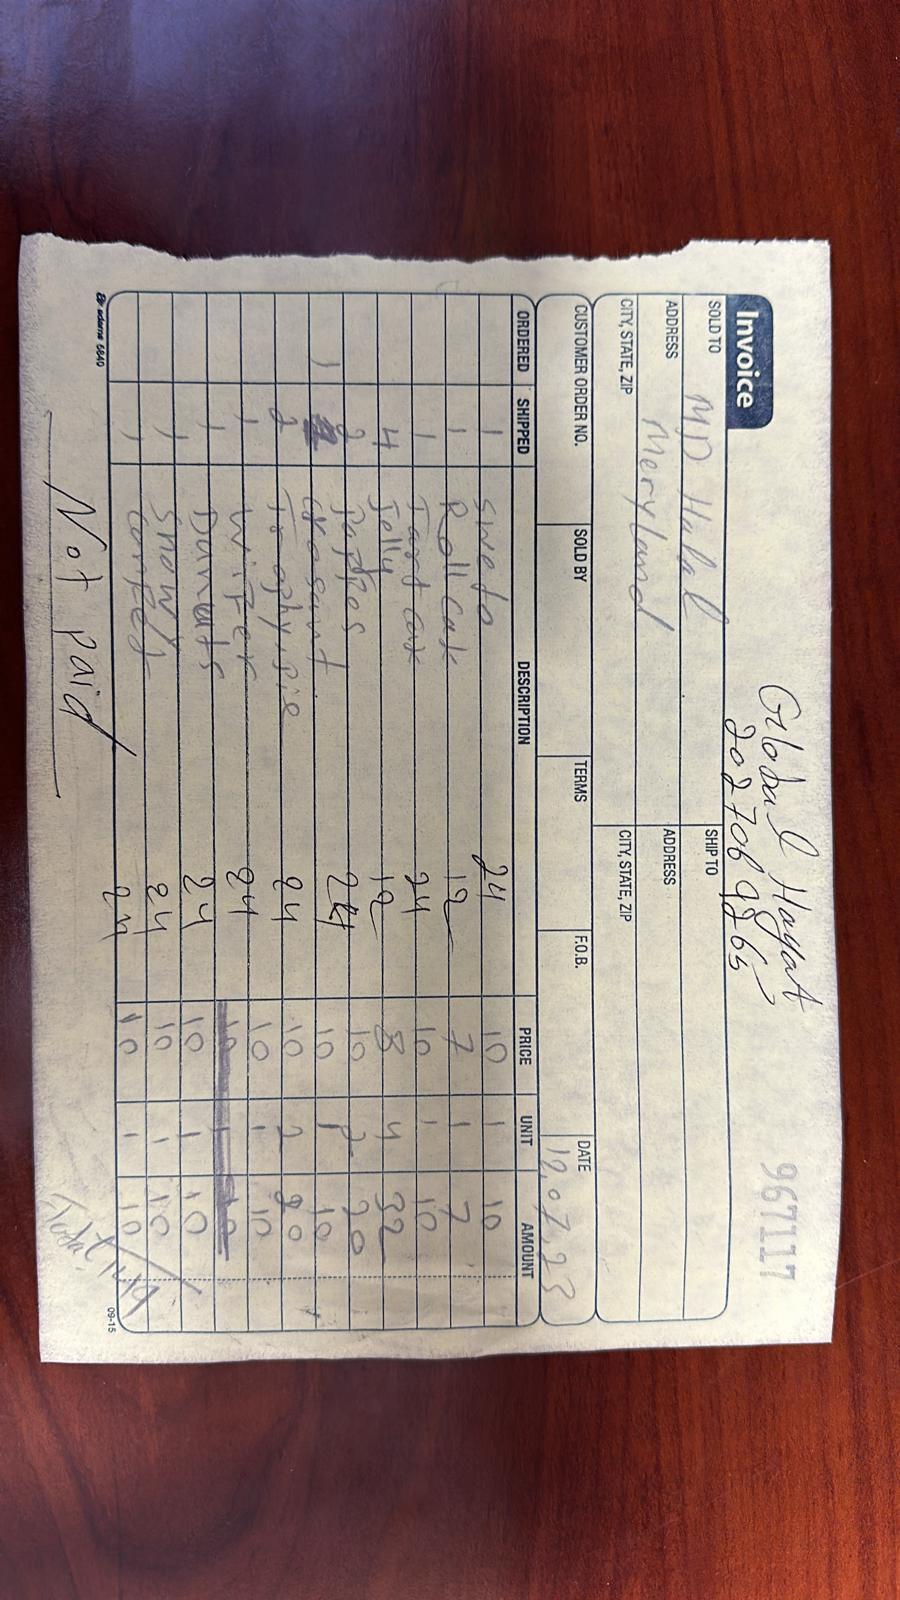 Global Hayat
2027069265
967117
Invoice
SOLD TO MD Halal SHIP TO
ADDRESS Meryland ADDRESS
CITY, STATE, ZIP CITY, STATE, ZIP
CUSTOMER ORDER NO. SOLD BY TERMS F.O.B. DATE
12.07.23
ORDERED SHIPPED DESCRIPTION PRICE UNIT AMOUNT
1 sweto 24 10 1 10
1 Roll cak 12 7 1 7
1 Tart cak 24 10 1 10
4 Jelly 12 8 4 32
2 pappos 24 10 2 20
1 crosant 10 1 10
2 Trophy pie 24 10 2 20
1 wifer 24 10 1 10
10 1 10
1 Dunuts 24 10 1 10
1 snowy 24 10 1 10
1 24 10 1 10
Total 149
adams 5840 09-15
Not paid